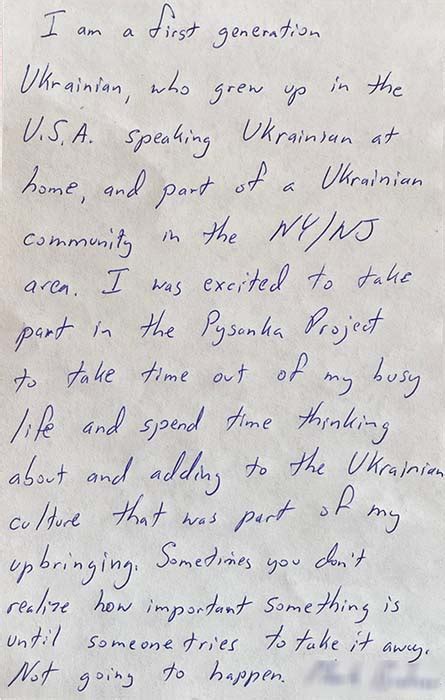 I am a first generation
Ukrainian, who grew up in the
U.S.A. speaking Ukrainian at
home, and part of a Ukrainian
community in the NY/NJ
area. I was excited to take
part in the Pysanka Project
to take time out of my busy
life and spend time thinking
about and adding to the Ukrainian
culture that was part of my
upbringing. Sometimes you don't
realize how important something is
until someone tries to take it away.
Not going to happen.